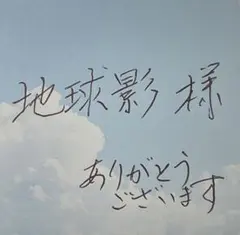 地球影 様
ありがとう
ございます